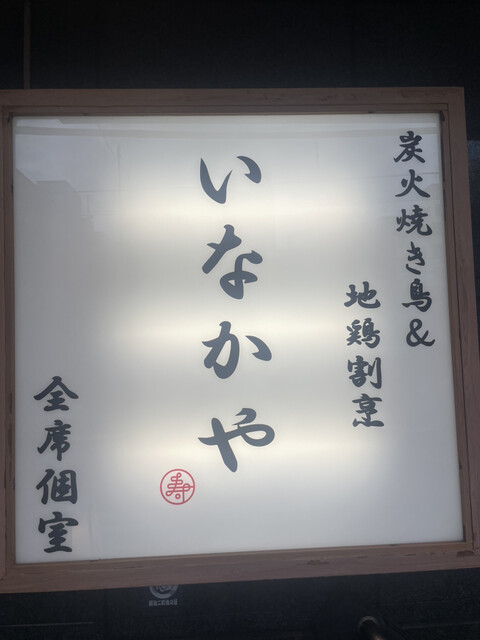 炭火焼き鳥&
地鶏割烹
いなかや
寿
全席個室